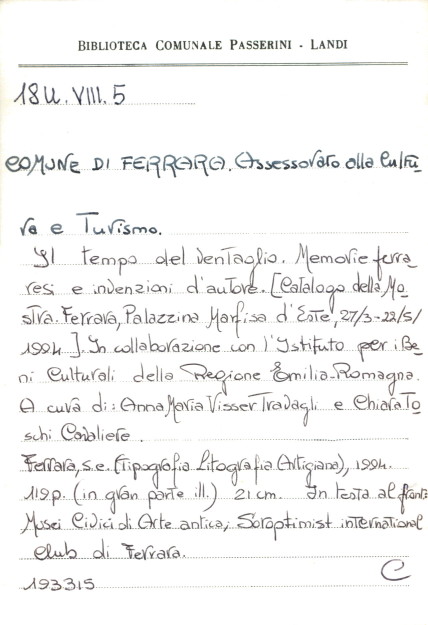 BIBLIOTECA COMUNALE PASSERINI - LANDI
18U.VIII.5
COMUNE DI FERRARA. Assessorato alla Cultu
ra e Turismo.
Il tempo del ventaglio. Memorie ferra
resi e invenzioni d'autore. [Catalogo della Mo
stra. Ferrara, Palazzina Marfisa d'Este, 27/3-22/5/
1994]. In collaborazione con l'Istituto per i Be
ni Culturali della Regione Emilia-Romagna.
A cura di: Anna Maria Visser Travagli e Chiara To
schi Cavaliere.
Ferrara, s.e. (Tipografia Litografia Artigiana), 1994.
119 p. (in gran parte ill.) 21 cm. In testa al front:
Musei Civici di Arte antica, Soroptimist international
club di Ferrara.
193315 C